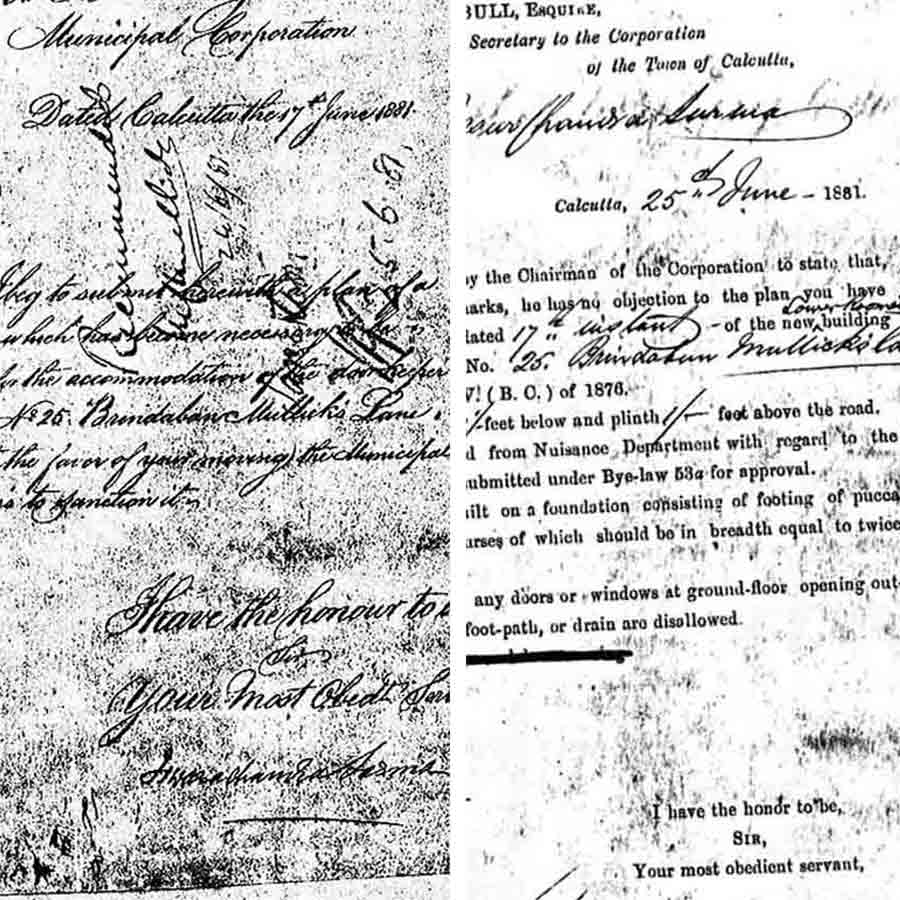 Municipal Corporation
Dated Calcutta the 17th June 1881
I beg to submit herewith a plan of a
which has become necessary
for the accommodation of the door keeper
No 25. Brindaban Mullick's Lane.
the favor of your moving the Municipal
to sanction it
I have the honour to
Sir
Your Most Obedt
Iswarachandra Sarma
24/6/81
25.6.81
BULL, ESQUIRE,
Secretary to the Corporation
of the Town of Calcutta,
Chandra Surma
Calcutta, 25th June - 1881.
by the Chairman of the Corporation to state that,
arks, he has no objection to the plan you have
Lower-roomed
lated 17th instant - of the new building
No. 25. Brindabun Mullick's La
(B. C.) of 1876.
feet below and plinth 1/- feet above the road.
d from Nuisance Department with regard to the
ubmitted under Bye-law 53a for approval.
ilt on a foundation consisting of footing of pucca
urses of which should be in breadth equal to twice
any doors or windows at ground-floor opening out-
foot-path, or drain are disallowed.
I have the honor to be,
SIR,
Your most obedient servant,